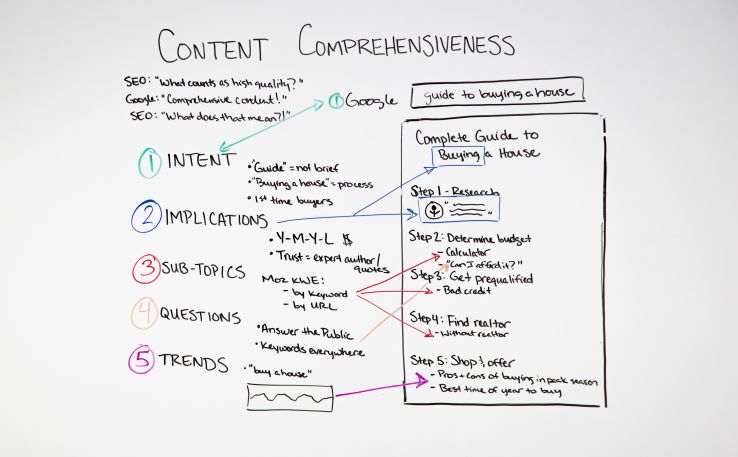 CONTENT COMPREHENSIVENESS
SEO: "What counts as high quality?"
Google: "Comprehensive content!"
SEO: "What does that mean?!"
① Google
guide to buying a house
① INTENT
• "Guide" = not brief
• "Buying a house" = process
• 1st time buyers
② IMPLICATIONS
• Y-M-Y-L $
• Trust = expert author/
quotes
③ SUB-TOPICS
MOZ KWE:
- by keyword
- by URL
④ QUESTIONS
• Answer the Public
• Keywords everywhere
⑤ TRENDS
• "buy a house"
Complete Guide to
Buying a House
Step 1 - Research
" "
Step 2: Determine budget
- Calculator
- "Can I afford it?"
Step 3: Get prequalified
- Bad credit
Step 4: Find realtor
- Without realtor
Step 5: Shop & offer
- Pros + cons of buying in peak season
- Best time of year to buy